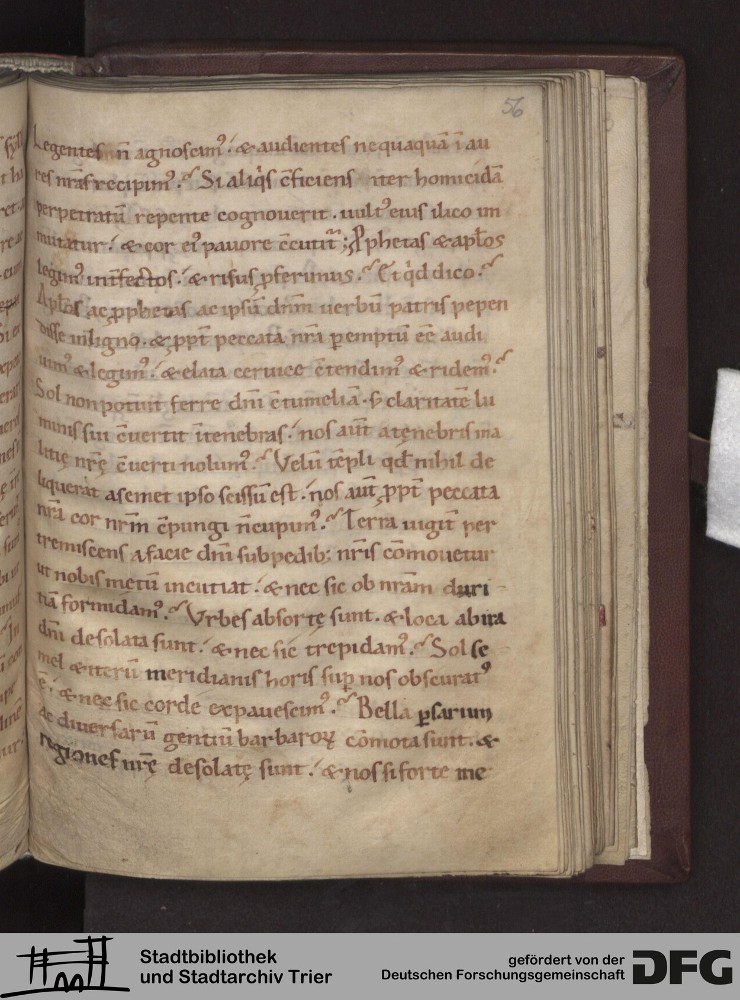 56
Legentes n̄ agnoscim᷒. & audientes nequaquā ī au
res nr̄as recipim᷒. Si aliqͥs c̄ficiens iter homicidā
perpetratū repente cognouerit. uult᷒ eius ilico im
mutatur. & cor ei᷒ pauore c̄cutit᷑; Pphetas & apl̄os
legim᷒ int̄fectos. & risus ꝓferimus. Et qͥd dico.
Apl̄os ac ꝓphetas ac ipsū dn̄m uerbū patris pepen
disse in ligno. & ꝓpt̄ peccata nr̄a peremptū eē audi
uim᷒ & legim᷒. & elata ceruice c̄tendim᷒ & ridem᷒.
Sol non potuit ferre dn̄i c̄tumeliā. s; claritatē lu
minis sui c̄uertit ī tenebras. nos aut̄ a tenebris ma
litię nr̄ę c̄uerti nolum᷒. Velū tēpli qd̄ nihil de
liquerat a semet ipso scissū est. nos aut̄ ꝓpt̄ peccata
nr̄a cor nr̄m c̄pungi n̄ cupim᷒. Terra uigit per
tremiscens a facie dn̄i sub pedib; nr̄is cōmouetur
ut nobis metū incutiat. & nec sic ob nr̄am duri
tiā formidam᷒. Vrbes absortę sunt. & loca ab ira
dn̄i desolata sunt. & nec sic trepidam᷒. Sol se
mel & iterū meridianis horis sup̄ nos obscurat᷒
ē. & nec sic corde expauescim᷒. Bella ꝑsarum
ac diuersarū gentiū barbaroꝝ cōmota sunt. &
regiones nr̄ę desolatę sunt. & nos si forte me
Stadtbibliothek
und Stadtarchiv Trier
gefördert von der
Deutschen Forschungsgemeinschaft
DFG